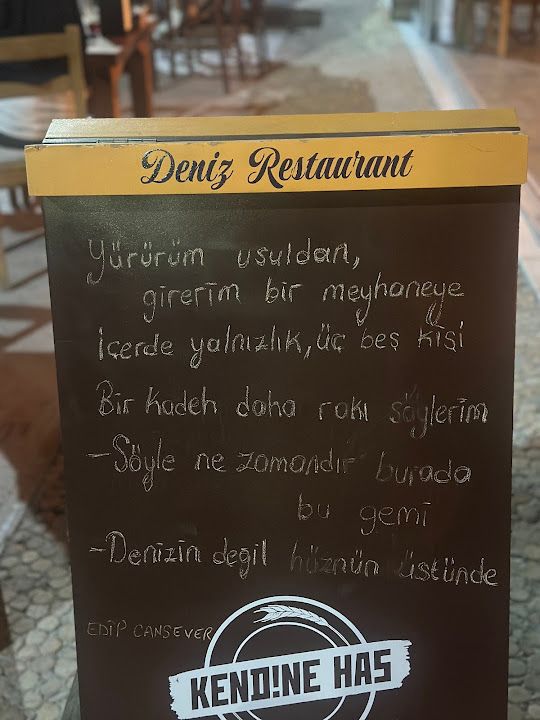 Deniz Restaurant
Yürürüm usuldan,
girerim bir meyhaneye
İçerde yalnızlık, üç beş kişi
Bir kadeh daha rakı söylerim
-Söyle ne zamandır burada
bu gemi
-Denizin değil hüznün üstünde
EDİP CANSEVER
KEND!NE HAS